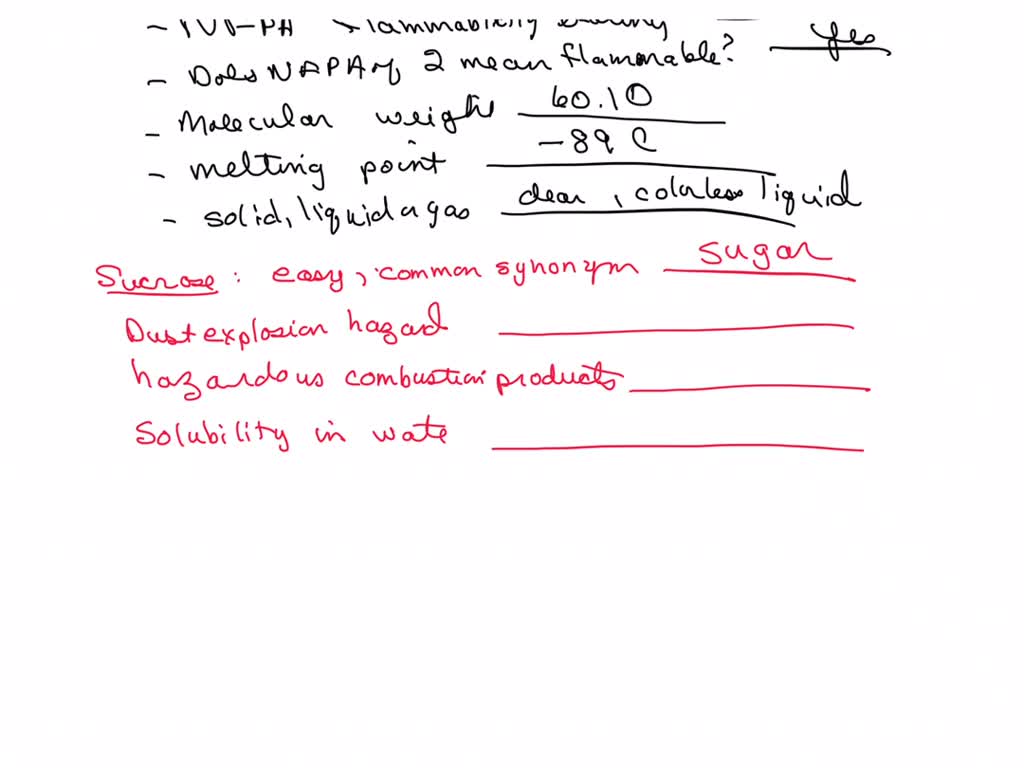 - Does NAPA of 2 mean flammable? yes
- Molecular weight 60.10
- melting point -89 C
- solid, liquid a gas clear, colorless liquid
Sucrose: easy, common synonym sugar
Dust explosion hazard
hazardous combustion products
Solubility in wate